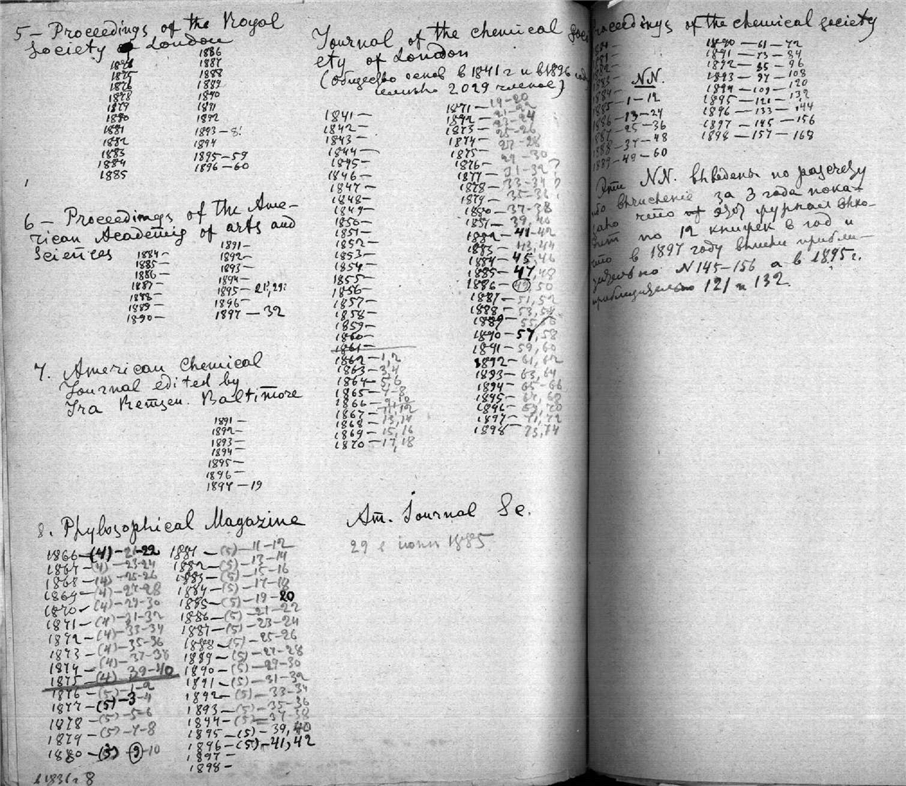 5 - Proceedings of the Royal
Society of London
1874
1875
1876
1878
1879
1880
1881
1882
1883
1884
1885
1886
1887
1888
1889
1890
1891
1892
1893 -
1894
1895-59
1896-60
6 - Proceedings of the Ame-
rican Academy of arts and
Sciences
1884 -
1885 -
1886 -
1887 -
1888 -
1889 -
1890 -
1891 -
1892 -
1893 -
1894 -
1895 -
1896 -
1897 - 32
7. American Chemical
Journal edited by
Ira Remsen. Baltimore
1891 -
1892 -
1893 -
1894 -
1895 -
1896 -
1897 - 19
8. Phylosophical Magazine
1866 - (4) - 21-22
1867 - (4) - 23-24
1868 - (4) - 25-26
1869 - (4) - 27-28
1870 - (4) - 29-30
1871 - (4) - 31-32
1872 - (4) - 33-34
1873 - (4) - 35-36
1874 - (4) - 37-38
1875 - (4) - 39-40
1876 - (5) - 1-2
1877 - (5) - 3-4
1878 - (5) - 5-6
1879 - (5) - 7-8
1880 - (5) - 9-10
1881 - (5) - 11-12
1882 - (5) - 13-14
1883 - (5) - 15-16
1884 - (5) - 17-18
1885 - (5) - 19-20
1886 - (5) - 21-22
1887 - (5) - 23-24
1888 - (5) - 25-26
1889 - (5) - 27-28
1890 - (5) - 29-30
1891 - (5) - 31-32
1892 - (5) - 33-34
1893 - (5) - 35-36
1894 - (5) - 37-38
1895 - (5) - 39, 40
1896 - (5) - 41, 42
1897 -
1898 -
Journal of the chemical soci
ety of London
(Общество основ в 1841 г и в 1896
2029 членов)
1841 -
1842 -
1843 -
1844 -
1845 -
1846 -
1847 -
1848 -
1849 -
1850 -
1851 -
1852 -
1853 -
1854 -
1855 -
1856 -
1857 -
1858 -
1859 -
1860 -
1861 -
1862 - 1, 2
1863 - 3, 4
1864 - 5, 6
1865 - 7-8
1866 - 9-10
1867 - 11, 12
1868 - 13, 14
1869 - 15, 16
1870 - 17, 18
1871 - 19-20
1872 - 21-22
1873 - 23-24
1874 - 25-26
1875 - 27-28
1876 - 29-30
1877 - 31-32
1878 - 33-34
1879 - 35-36
1880 - 37-38
1881 - 39, 40
1882 - 41-42
1883 - 43, 44
1884 - 45, 46
1885 - 47, 48
1886 - 49, 50
1887 - 51, 52
1888 - 53, 54
1889 - 55, 56
1890 - 57, 58
1891 - 59, 60
1892 - 61, 62
1893 - 63, 64
1894 - 65-66
1895 - 67, 68
1896 - 69, 70
1897 - 71, 72
1898 - 73, 74
Am. Journal Sc.
29 в июни 1885
roceedings of the chemical society
N.N.
- 1-12
- 13-24
- 25-36
- 37-48
- 49-60
1890 - 61 - 72
1891 - 73 - 84
1892 - 85 - 96
1893 - 97 - 108
1894 - 109 - 120
1895 - 121 - 132
1896 - 133 - 144
1897 - 145 - 156
1898 - 157 - 168
Эти N.N. выведены по расчету
вычисление за 3 года пока-
зано что этот журнал выхо-
дит по 12 книжек в год и
что в 1897 году вышли прибли-
зительно N 145-156 а в 1895 г.
приблизительно 121 и 132